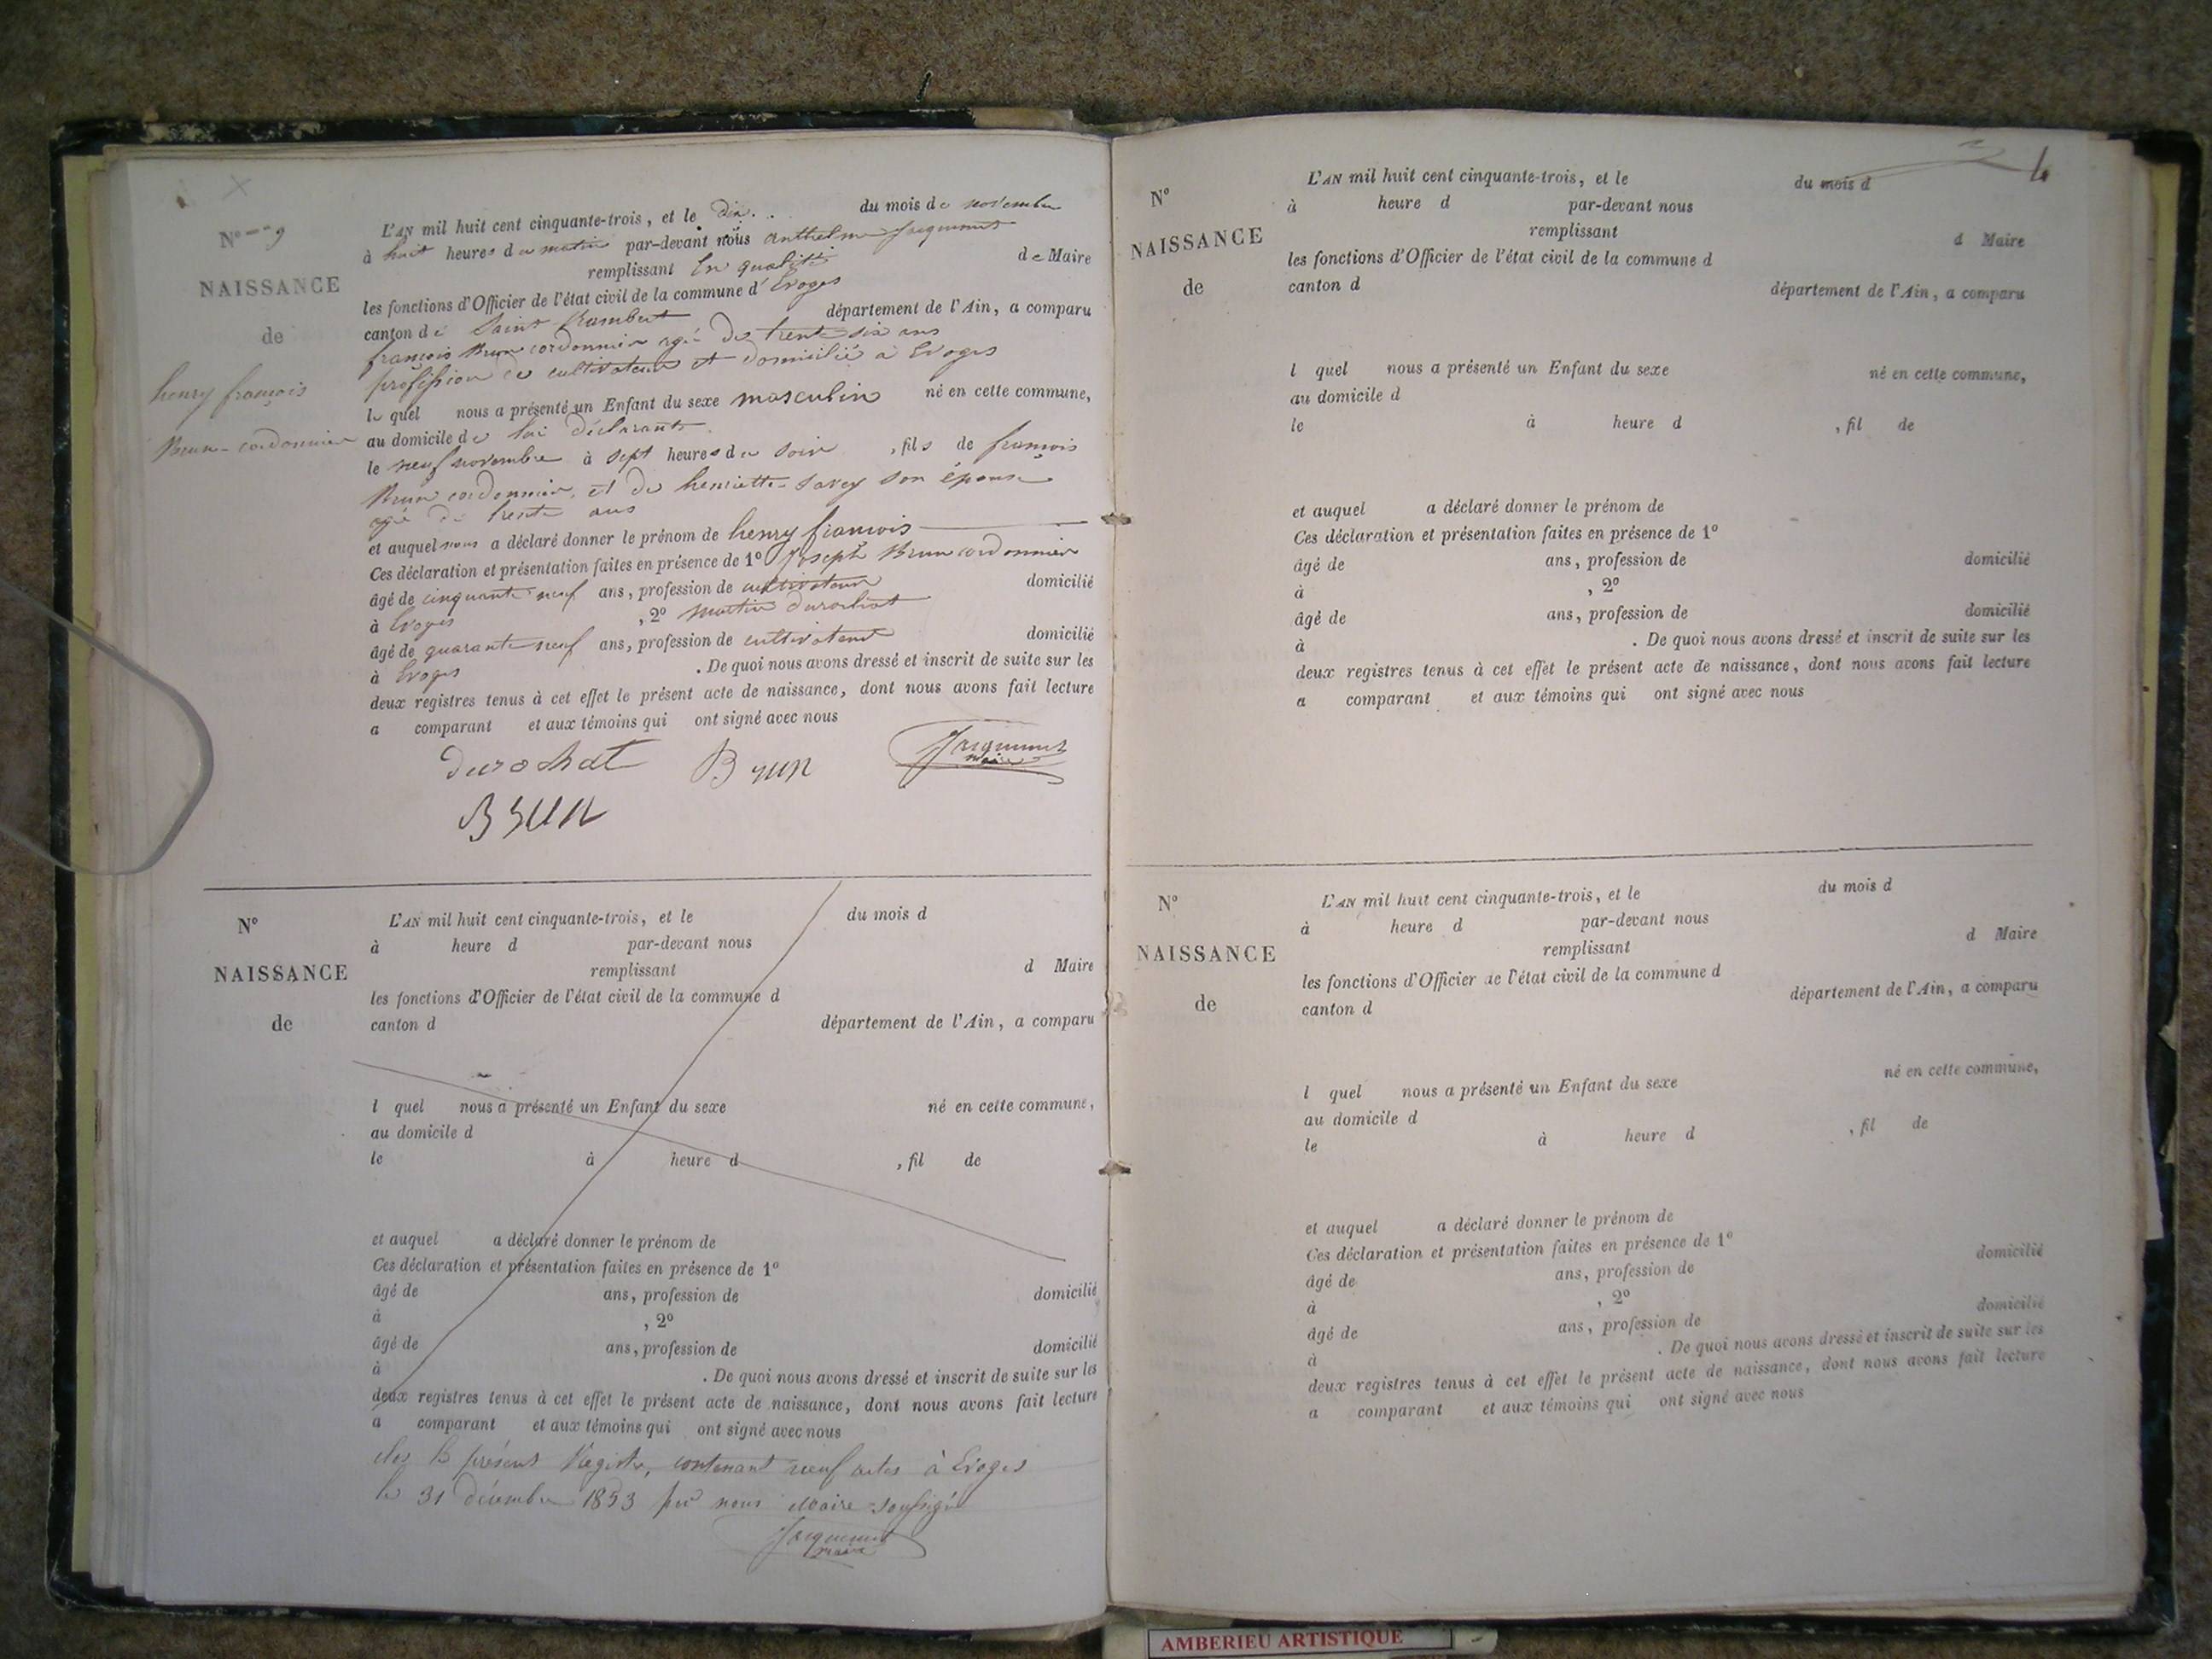 N° 9
NAISSANCE
de
henry françois
Brun-cordonnier
L'AN mil huit cent cinquante-trois, et le dix du mois de novembre
à huit heures du matin par-devant nous anthelme Jacquemet
remplissant en qualité de Maire
les fonctions d'Officier de l'état civil de la commune d'Evoges
canton de Saint Rambert département de l'Ain, a comparu
françois Brun cordonnier agé de trente six ans
profession de cultivateur et domicilié à Evoges
le quel nous a présenté un Enfant du sexe masculin né en cette commune,
au domicile de lui déclarant
le neuf novembre à sept heures du soir, fils de françois
Brun cordonnier, et de henriette Savey son épouse
agé de trente ans
et auquel nous a déclaré donner le prénom de henry francois
Ces déclaration et présentation faites en présence de 1° Joseph Brun cordonnier
âgé de cinquante neuf ans, profession de cultivateur domicilié
à Evoges, 2° martin durochat
âgé de quarante neuf ans, profession de cultivateur domicilié
à Evoges. De quoi nous avons dressé et inscrit de suite sur les
deux registres tenus à cet effet le présent acte de naissance, dont nous avons fait lecture
a comparant et aux témoins qui ont signé avec nous
Durochat Brun Jacquemet
maire
Brun
N°
NAISSANCE
de
L'AN mil huit cent cinquante-trois, et le du mois d
à heure d par-devant nous
remplissant d Maire
les fonctions d'Officier de l'état civil de la commune d
canton d département de l'Ain, a comparu
l quel nous a présenté un Enfant du sexe né en cette commune,
au domicile d
le à heure d , fil de
et auquel a déclaré donner le prénom de
Ces déclaration et présentation faites en présence de 1°
âgé de ans, profession de domicilié
à , 2°
âgé de ans, profession de domicilié
à . De quoi nous avons dressé et inscrit de suite sur les
deux registres tenus à cet effet le présent acte de naissance, dont nous avons fait lecture
a comparant et aux témoins qui ont signé avec nous
clos le présent Registre, contenant neuf actes à Evoges
le 31 décembre 1853 par nous Maire soussigné
Jacquemet
maire
4
N°
NAISSANCE
de
L'AN mil huit cent cinquante-trois, et le du mois d
à heure d par-devant nous
remplissant d Maire
les fonctions d'Officier de l'état civil de la commune d
canton d département de l'Ain, a comparu
l quel nous a présenté un Enfant du sexe né en cette commune,
au domicile d
le à heure d , fil de
et auquel a déclaré donner le prénom de
Ces déclaration et présentation faites en présence de 1°
âgé de ans, profession de domicilié
à , 2°
âgé de ans, profession de domicilié
à . De quoi nous avons dressé et inscrit de suite sur les
deux registres tenus à cet effet le présent acte de naissance, dont nous avons fait lecture
a comparant et aux témoins qui ont signé avec nous
N°
NAISSANCE
de
L'AN mil huit cent cinquante-trois, et le du mois d
à heure d par-devant nous
remplissant d Maire
les fonctions d'Officier de l'état civil de la commune d
canton d département de l'Ain, a comparu
l quel nous a présenté un Enfant du sexe né en cette commune,
au domicile d
le à heure d , fil de
et auquel a déclaré donner le prénom de
Ces déclaration et présentation faites en présence de 1°
âgé de ans, profession de domicilié
à , 2°
âgé de ans, profession de domicilié
à . De quoi nous avons dressé et inscrit de suite sur les
deux registres tenus à cet effet le présent acte de naissance, dont nous avons fait lecture
a comparant et aux témoins qui ont signé avec nous
AMBERIEU ARTISTIQUE